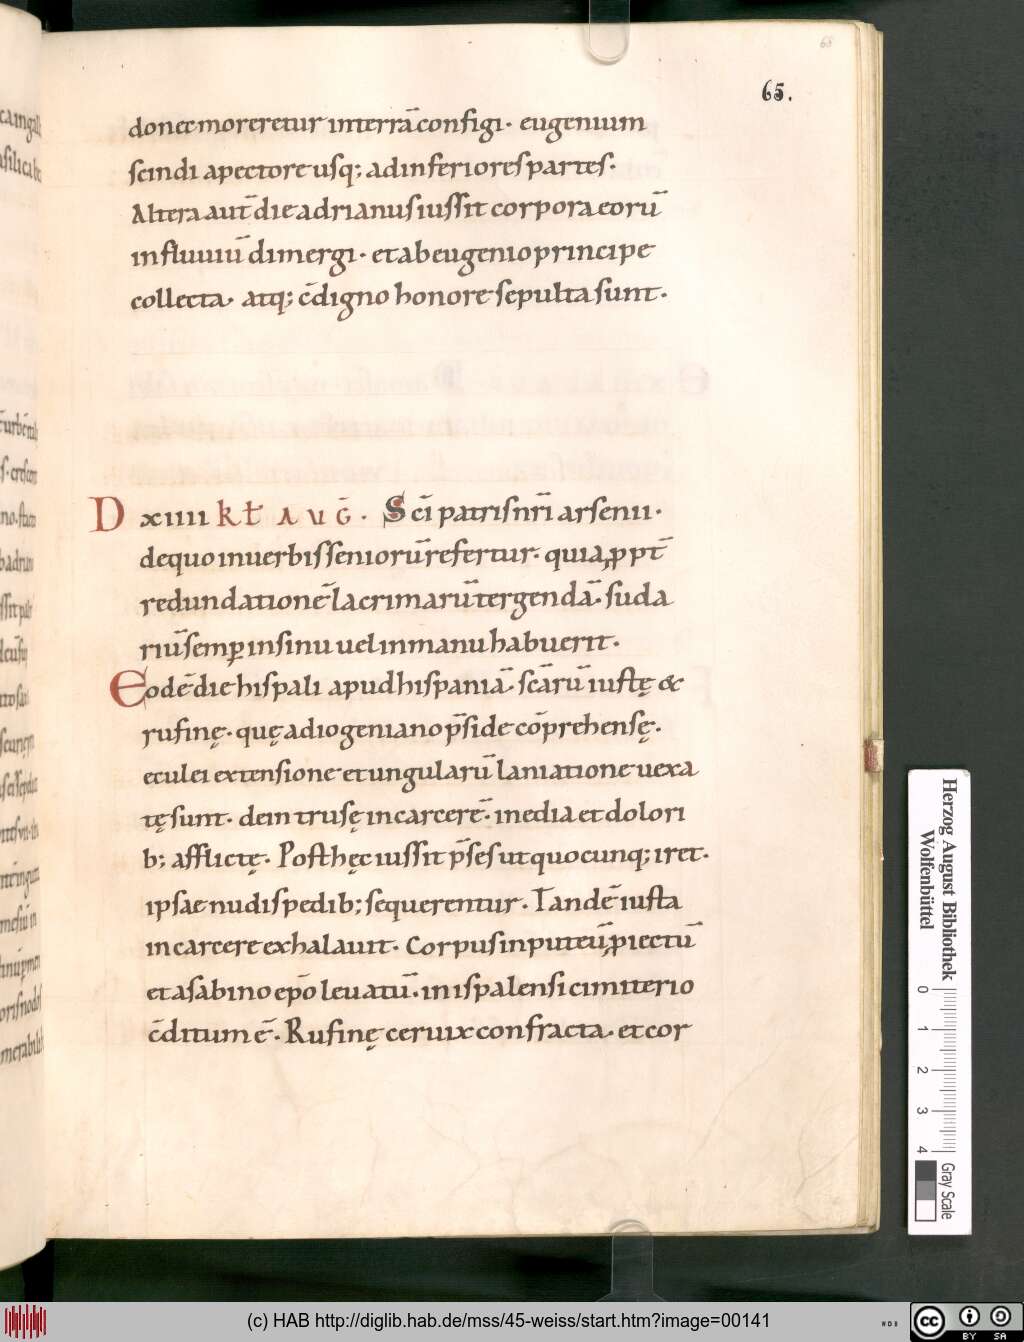 65.
donec moreretur in terrā configi. eugenium
scindi a pectore usq; ad inferiores partes.
Altera aut̄ die adrianus iussit corpora eorū
in fluuiū dimergi. et ab eugenio principe
collecta. atq; c̄digno honore sepulta sunt.
D xiiii kł AUG̅. Sc̄i patris nr̄i arsenii.
de quo in uerbis seniorū refertur. quia ꝓpt̄
redundationē lacrimarū tergendā. suda
riū semꝑ in sinu uel in manu habuerit.
Eodē die hispali apud hispaniā. scārū iustę &
rufinę. quę a diogeniano p̄side cōprehensę.
eculei extensione et ungularū laniatione uexa
tę sunt. dein trusę in carcerē. inedia et dolori
b; afflictę. Post hęc iussit p̄ses ut quocunq; iret.
ipsae nudis pedib; sequerentur. Tandē iusta
in carcere exhalauit. Corpus in puteū ꝓiectū
et a sabino ep̄o leuatū. in ispalensi cimiterio
c̄ditum ē. Rufinę ceruix confracta. et cor
Herzog August Bibliothek
Wolfenbüttel
0 1 2 3 4
Gray Scale
(c) HAB http://diglib.hab.de/mss/45-weiss/start.htm?image=00141
cc BY SA